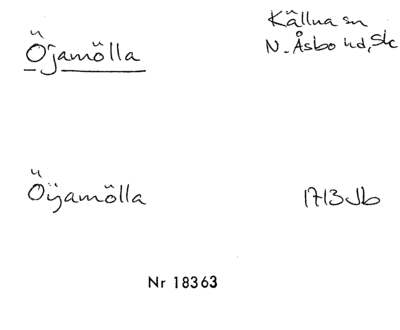 Öjamölla
Källna sn
N. Åsbo hd, Sk
Öÿamölla 1713 Jb
Nr 18363